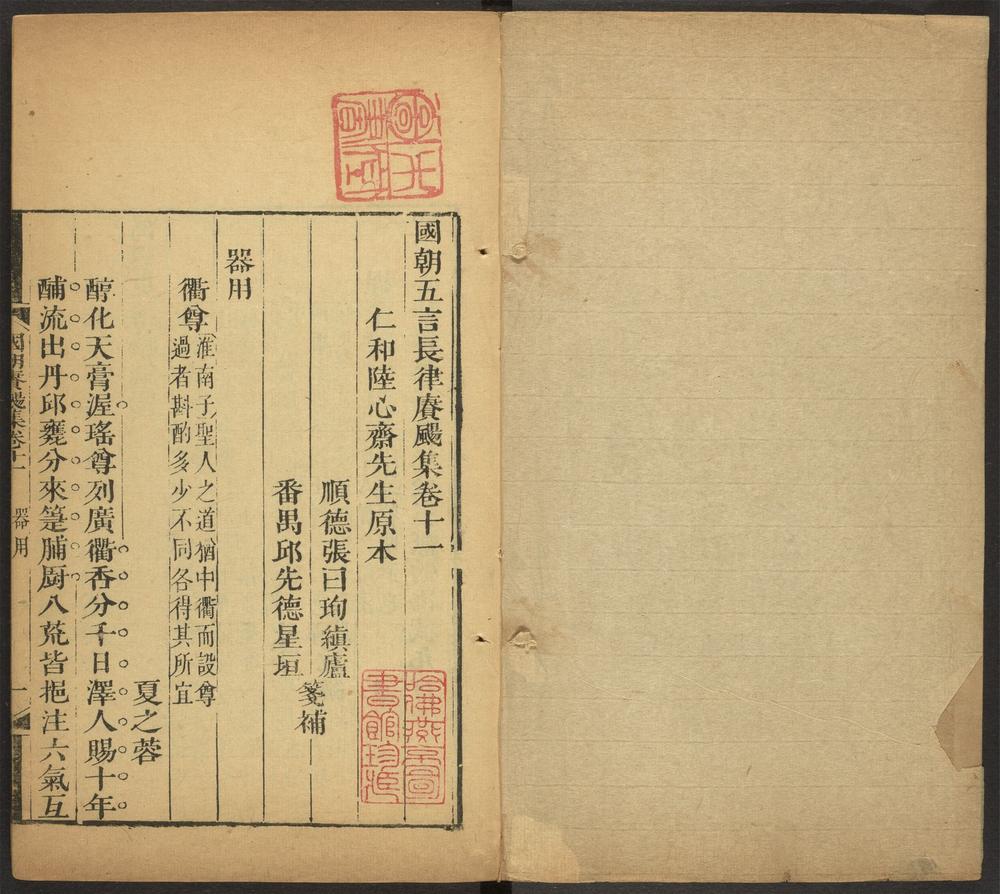 國朝五言長律賡颺集卷十一
仁和陸心齋先生原本
順德張曰珣縝廬
番禺邱先德星垣
箋補
器用
衢尊
淮南子聖人之道猶中衢而設尊
過者斟酌多少不同各得其所宜
夏之蓉
醇化天膏渥瑤尊列廣衢香分千日澤人賜十年
酺流出丹邱甕分來箑脯厨八荒皆挹注六氣互
國朝賡颺集卷十一
器用
一
哈佛燕京圖書館珍藏